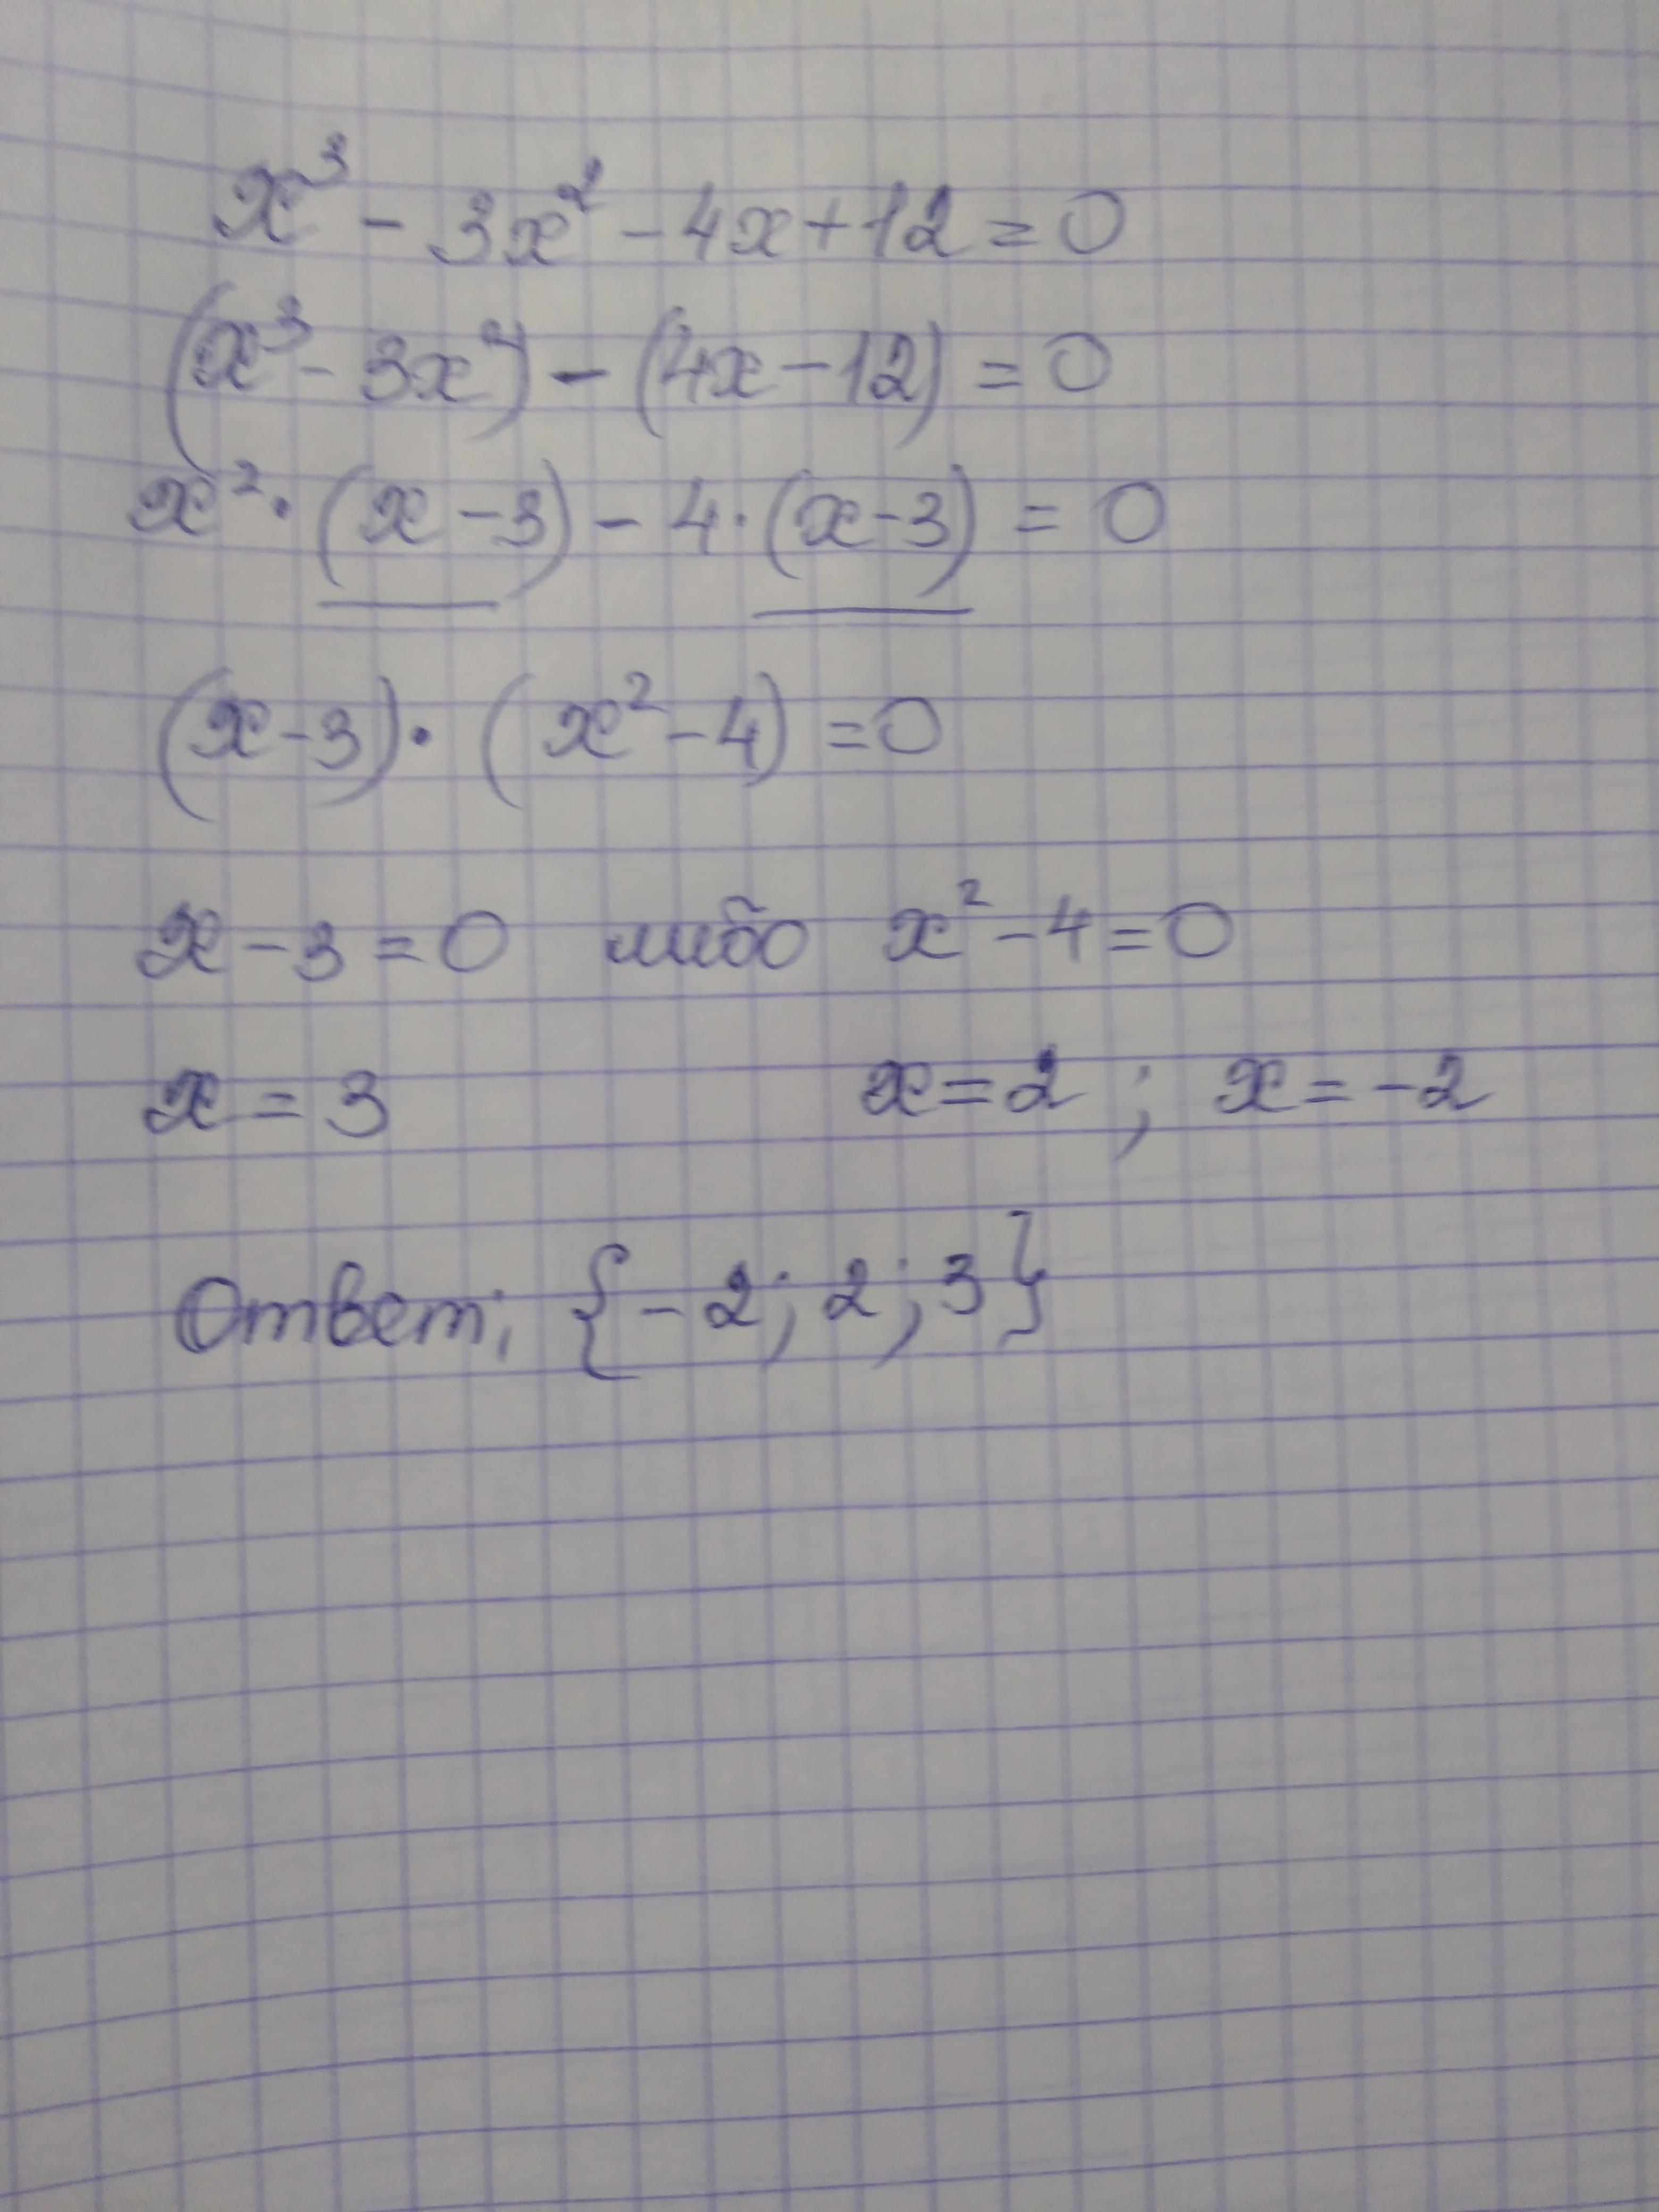 x³ - 3x² - 4x + 12 = 0
(x³ - 3x²) - (4x - 12) = 0
x² · (x - 3) - 4 · (x - 3) = 0
(x - 3) · (x² - 4) = 0
x - 3 = 0 либо x² - 4 = 0
x = 3 x = 2 ; x = -2
Ответ: {-2; 2; 3}